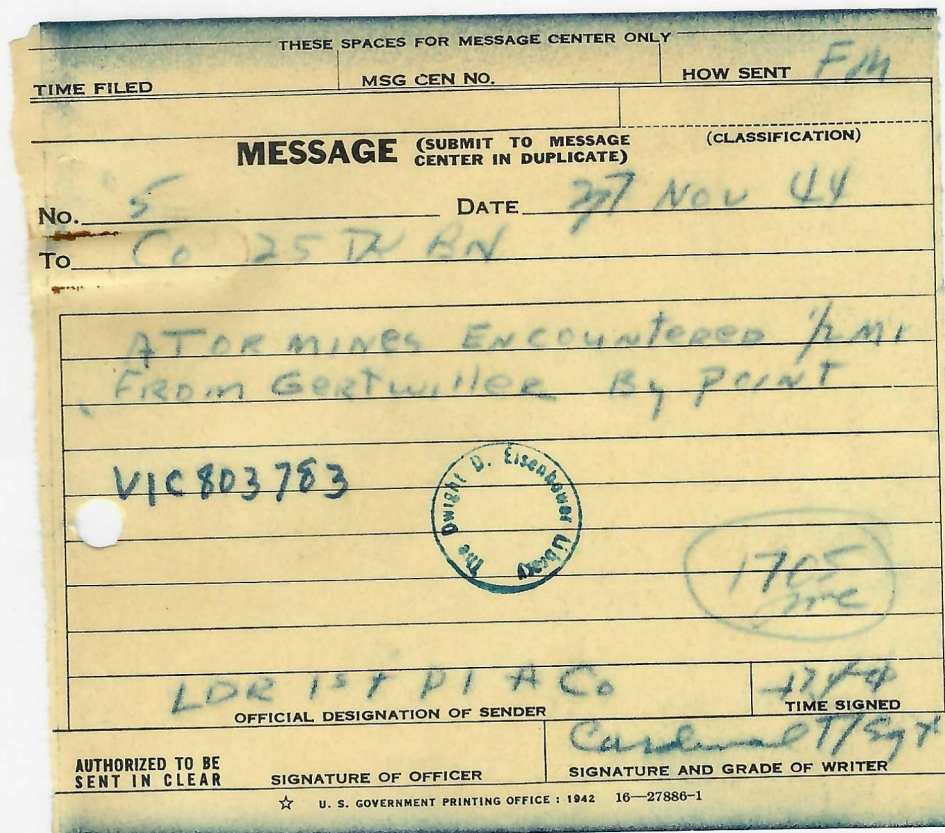 THESE SPACES FOR MESSAGE CENTER ONLY
TIME FILED MSG CEN NO. HOW SENT FM
MESSAGE (SUBMIT TO MESSAGE CENTER IN DUPLICATE) (CLASSIFICATION)
No. 5 DATE 27 Nov 44
To Co 25 TK BN
AT OR MINES ENCOUNTERED 1/2 MI
FROM GERTWILLER By POINT
VIC 803783
The Dwight D. Eisenhower Library
1705
LDR 1ST Pl A Co
OFFICIAL DESIGNATION OF SENDER TIME SIGNED
T/Sgt
AUTHORIZED TO BE SENT IN CLEAR SIGNATURE OF OFFICER SIGNATURE AND GRADE OF WRITER
☆ U. S. GOVERNMENT PRINTING OFFICE : 1942 16—27886-1